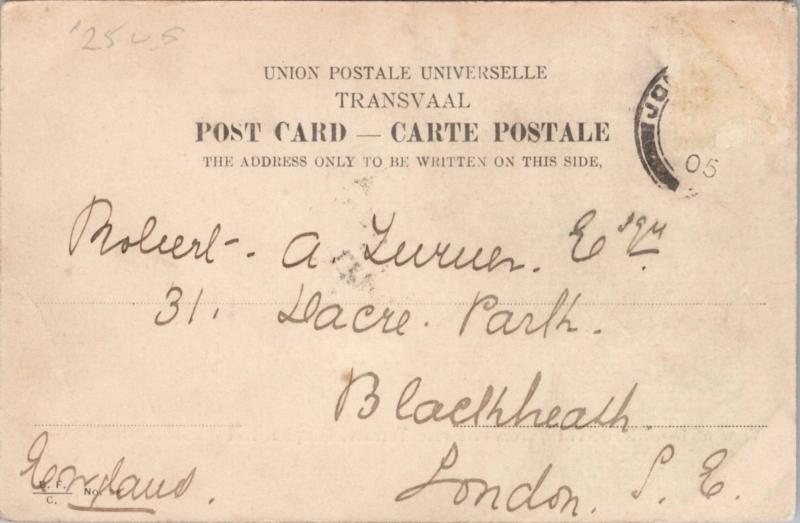 '25 U.S
UNION POSTALE UNIVERSELLE
TRANSVAAL
POST CARD — CARTE POSTALE
THE ADDRESS ONLY TO BE WRITTEN ON THIS SIDE,
JO
05
Robert. A. Turner. Esqr
31. Dacre. Park.
Blackheath.
London. S. E.
England.
B. F.
C.
No.